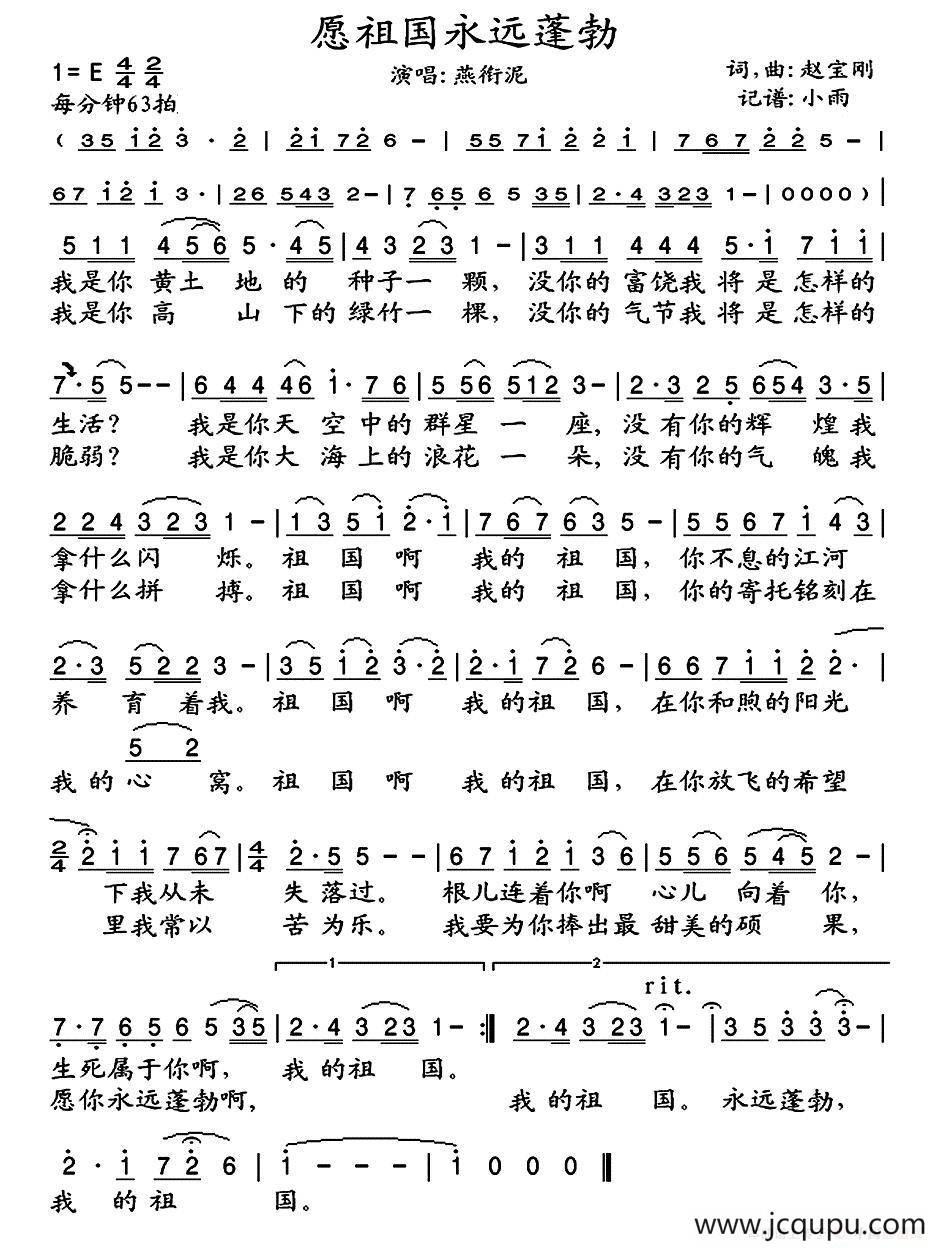 愿祖国永远蓬勃
1=E 4/4 2/4 演唱:燕衔泥 词,曲:赵宝刚
每分钟63拍 记谱:小雨
(35 i2 3· 2 | 2i 72 6 - | 55 7i 2 2 i | 7 6 7 2 2 5 - |
67 i2 i 3· | 26 543 2 - | 7 65 6 5 35 | 2·4 323 1 - | 0000) |
5 1 1 4 5 6 5· 4 5 | 4 3 2 3 1 - | 3 1 1 4 4 4 5· i 7 i i
我是你黄土地的种子一颗,没你的富饶我将是怎样的
我是你高山下的绿竹一棵,没你的气节我将是怎样的
7·5 5 - - | 6 4 4 4 6 i· 7 6 | 5 5 6 5 1 2 3 - | 2·3 2 5 6 5 4 3·5
生活?我是你天空中的群星一座,没有你的辉煌我
脆弱?我是你大海上的浪花一朵,没有你的气魄我
2 2 4 3 2 3 1 - | 1 3 5 i 2·i | 7 6 7 6 3 5 - | 5 5 6 7 i 4 3 |
拿什么闪烁。祖国啊我的祖国,你不息的江河
拿什么拼搏。祖国啊我的祖国,你的寄托铭刻在
2·3 5 2 2 3 - | 3 5 i 2 3·2 | 2·i 7 2 6 - | 6 6 7 i i 2 2·
养育着我。祖国啊我的祖国,在你和煦的阳光
5 2
我的心窝。祖国啊我的祖国,在你放飞的希望
2/4 2 i i 7 6 7 | 4/4 2·5 5 - - | 6 7 i 2 i 3 6 | 5 5 6 5 4 5 2 - |
下我从未失落过。根儿连着你啊心儿向着你,
里我常以苦为乐。我要为你捧出最甜美的硕果,
1 2
rit.
7·7 6 5 6 5 3 5 | 2·4 3 2 3 1 - :| 2·4 3 2 3 1 - | 3 5 3 3 3 -
生死属于你啊,我的祖国。
愿你永远蓬勃啊,我的祖国。永远蓬勃,
2· i 7 2 6 | i - - - | i 0 0 0 ‖
我的祖国。
www.jcqupu.com